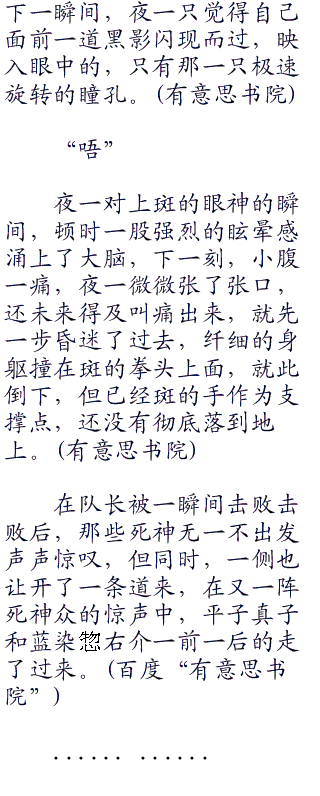 下一瞬间，夜一只觉得自己
面前一道黑影闪现而过，映
入眼中的，只有那一只极速
旋转的瞳孔。(有意思书院)
“唔”
夜一对上斑的眼神的瞬
间，顿时一股强烈的眩晕感
涌上了大脑，下一刻，小腹
一痛，夜一微微张了张口，
还未来得及叫痛出来，就先
一步昏迷了过去，纤细的身
躯撞在斑的拳头上面，就此
倒下，但已经斑的手作为支
撑点，还没有彻底落到地
上。(有意思书院)
在队长被一瞬间击败击
败后，那些死神无一不出发
声声惊叹，但同时，一侧也
让开了一条道来，在又一阵
死神众的惊声中，平子真子
和蓝染惣右介一前一后的走
了过来。(百度“有意思书
院”)
······ ······